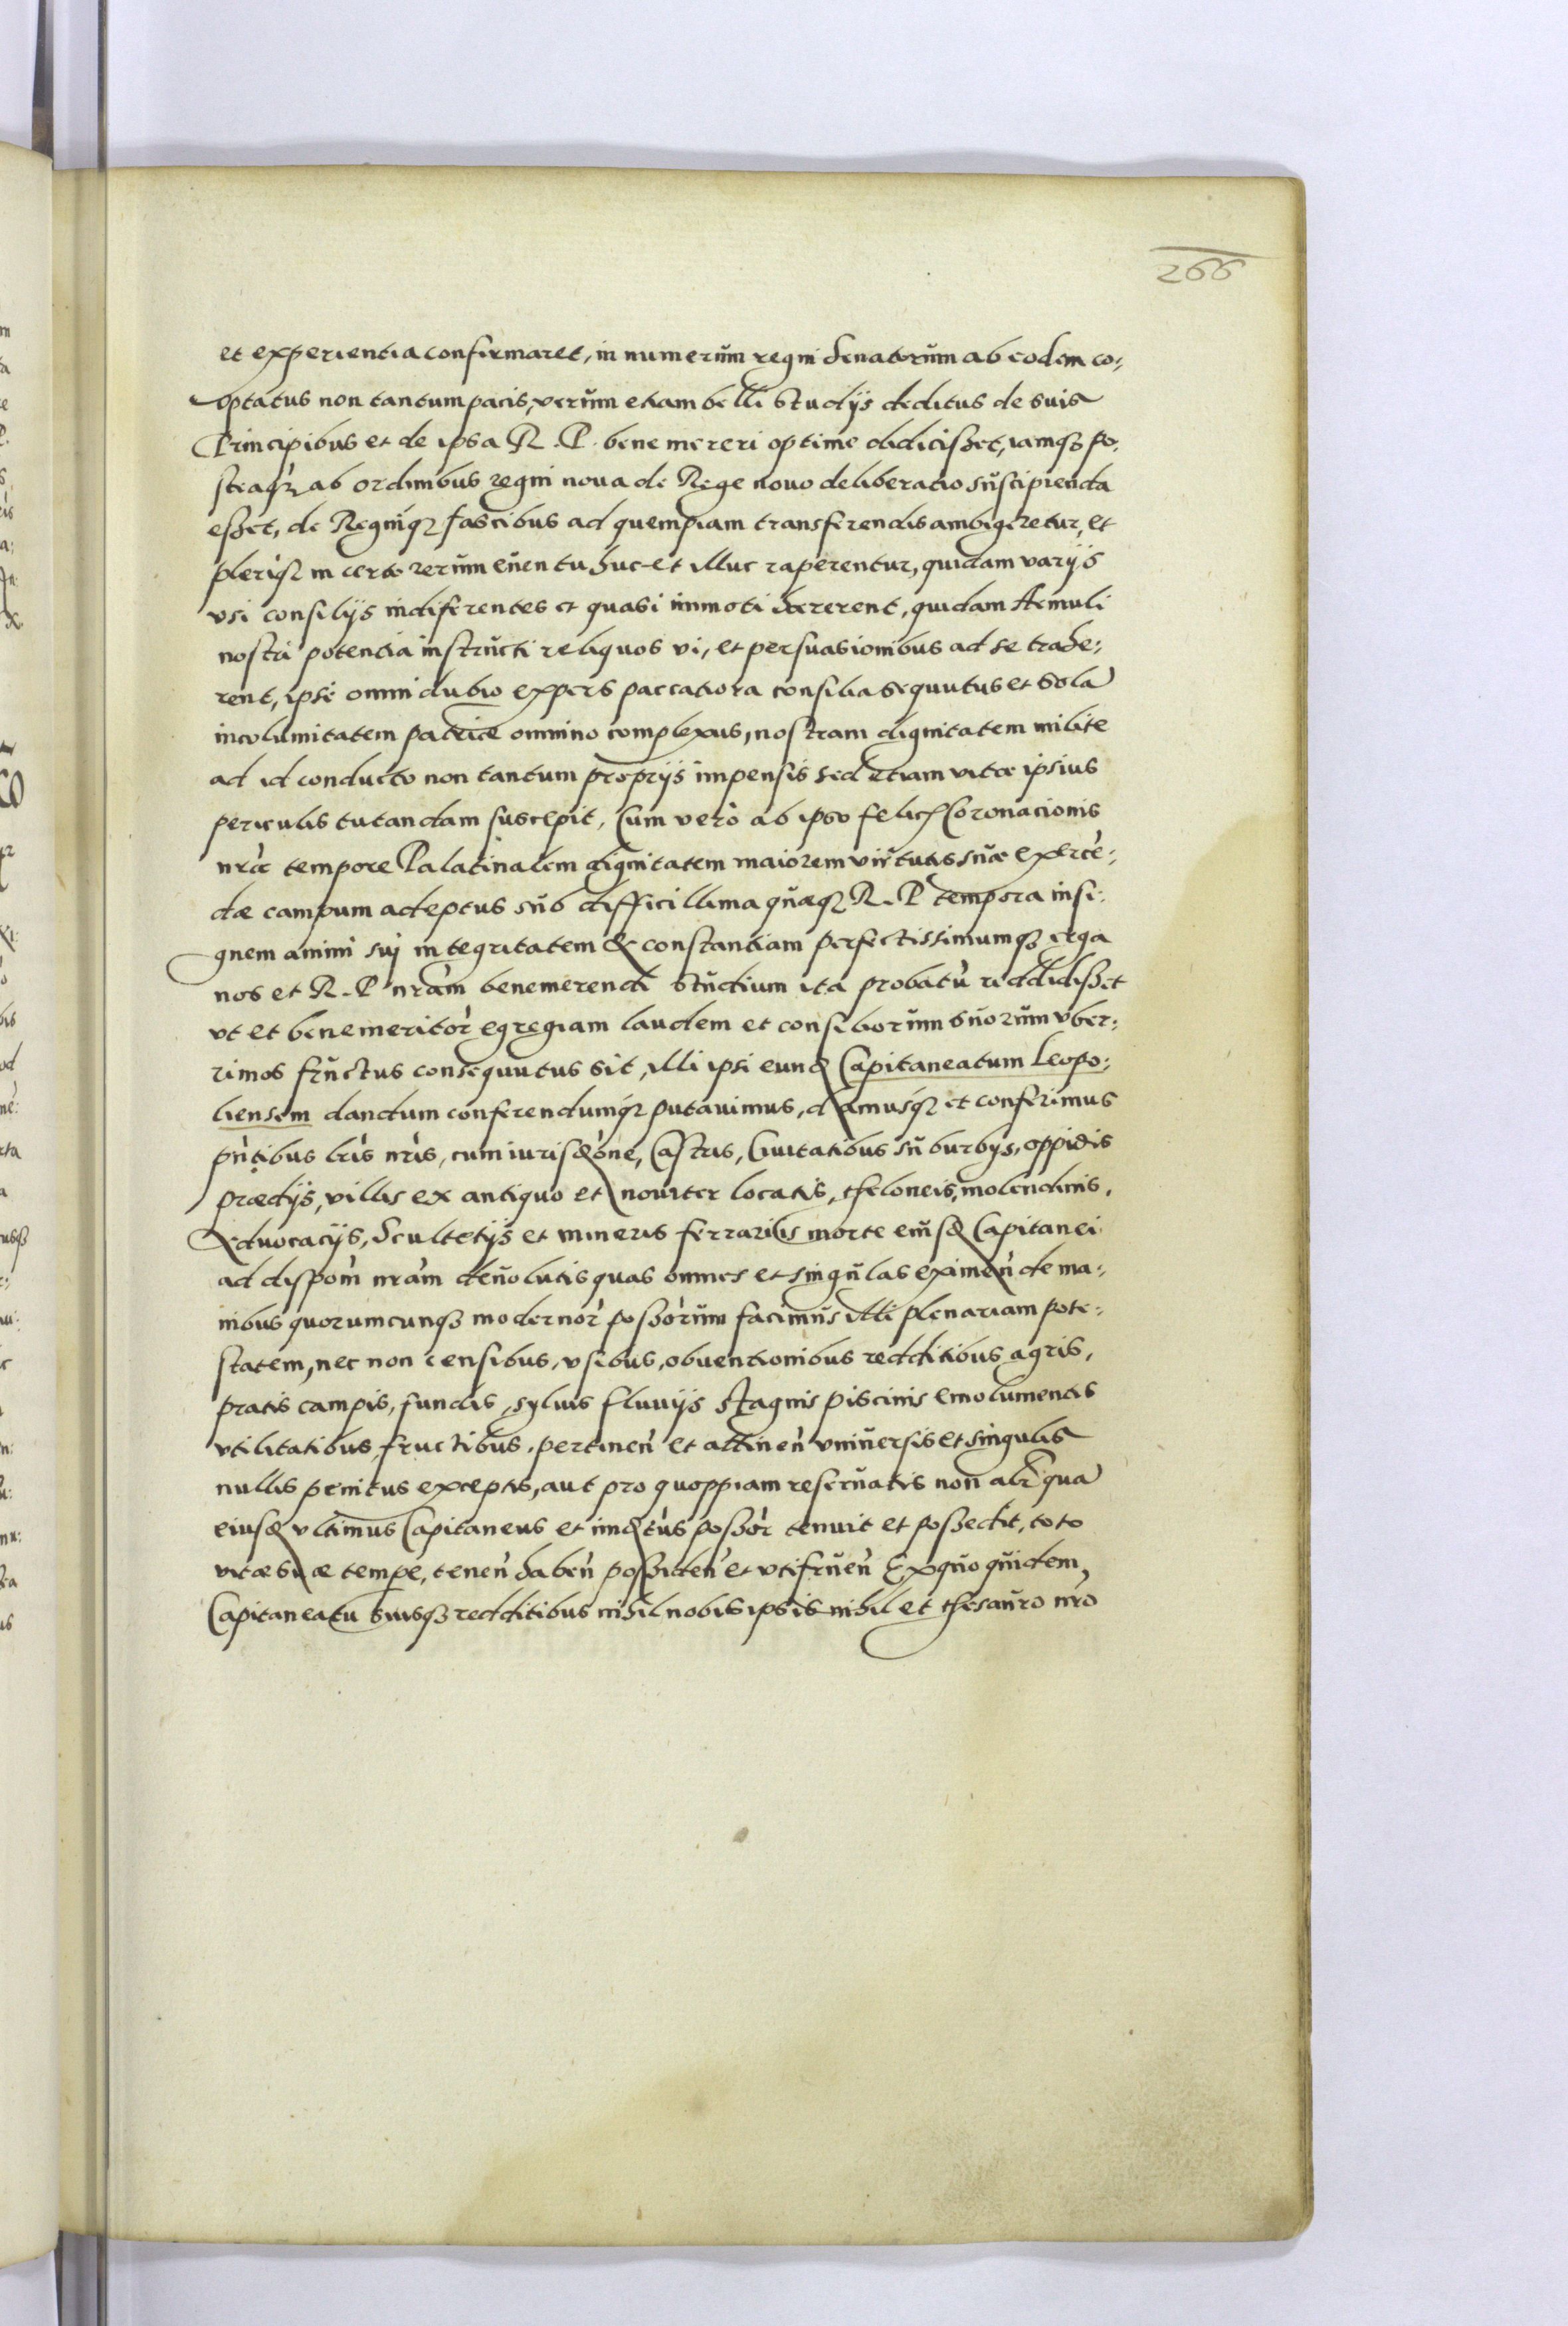 266
et experientia confirmaret, in numerŭm regni Senatorŭm ab eodem co:
optatus non tantum pacis, verŭm etiam belli Studijs deditus de suis
Principibus et de ipsa R. P. bene mereri optime didicisset, iamqȝ po:
steaqȝ ab ordinibus regni noua de Rege nouo deliberatio sŭscipienda
esset, de Regniqȝ fascibus ad quempiam transferendis ambigeretur, et
pleriqȝ incerto rerŭm euentu huc et illuc raperentur, quidam varijs
vsi consilijs indiferentes et quasi immoti haererent, quidam Aemuli
nostri potentia instrŭcti reliquos vi, et persuasionibus ad se trahe:
rent, ipse omni dubio expers paccatiora consilia sequutus et Sola
incolumitatem patriæ omnino complexus, nostram dignitatem milite
ad id conducto non tantum proprijs impensis sed etiam vitæ ipsius
periculis tutandam suscepit, Cum verò ab ipso felicis Coronacionis
nræ tempore Palatinalem dignitatem maiorem virtutis suæ exercē:
dæ campum adeptus sŭb difficillima quæqȝ R. P. tempora insi:
gnem animi sui integritatem & constantiam perfectissimumqȝ erga
nos et R. P. nram benemerendi Stŭdium ita probatū reddidisset
vt et benemeritor egregiam laudem et consiliorŭm sŭorŭm vber:
rimos frŭctus consequutus sit, illi ipsi eund Capitaneatum Leopo:
liensem dandum conferendumqȝ putauimus, damusqȝ et conferimus
pntibus lris nris, cum iurisdone, Castris, Ciuitatibus sŭburbijs, oppidis
prædijs, villis ex antiquo et nouiter locatis, theloneis, molendinis,
Aduocacijs, Scultetijs et mineris ferrarijs morte eiusd Capitanei
ad disposn nram deŭolutis quas omnes et singŭlas eximen de ma:
nibus quorumcunqȝ modernor possorŭm facimŭs illi plenariam pote:
statem, nec non censibus, vsibus, obuentionibus redditibus agris,
pratis campis, fundis, syluis fluuijs Stagnis piscinis emolumentis
vtilitatibus, fructibus, pertinen et attinen vniŭersis et singulis
nullis penitus exceptis, aut pro quoppiam reserŭatis non alr qua
eiusd vltimus Capitaneus et imdtus possor tenuit et possedit, toto
vitæ suæ tempe, tenen haben possiden et vtifrŭen Ex quo quidem
Capitaneatu suisqȝ redditibus nihil nobis ipsis nihil et thesaŭro nro